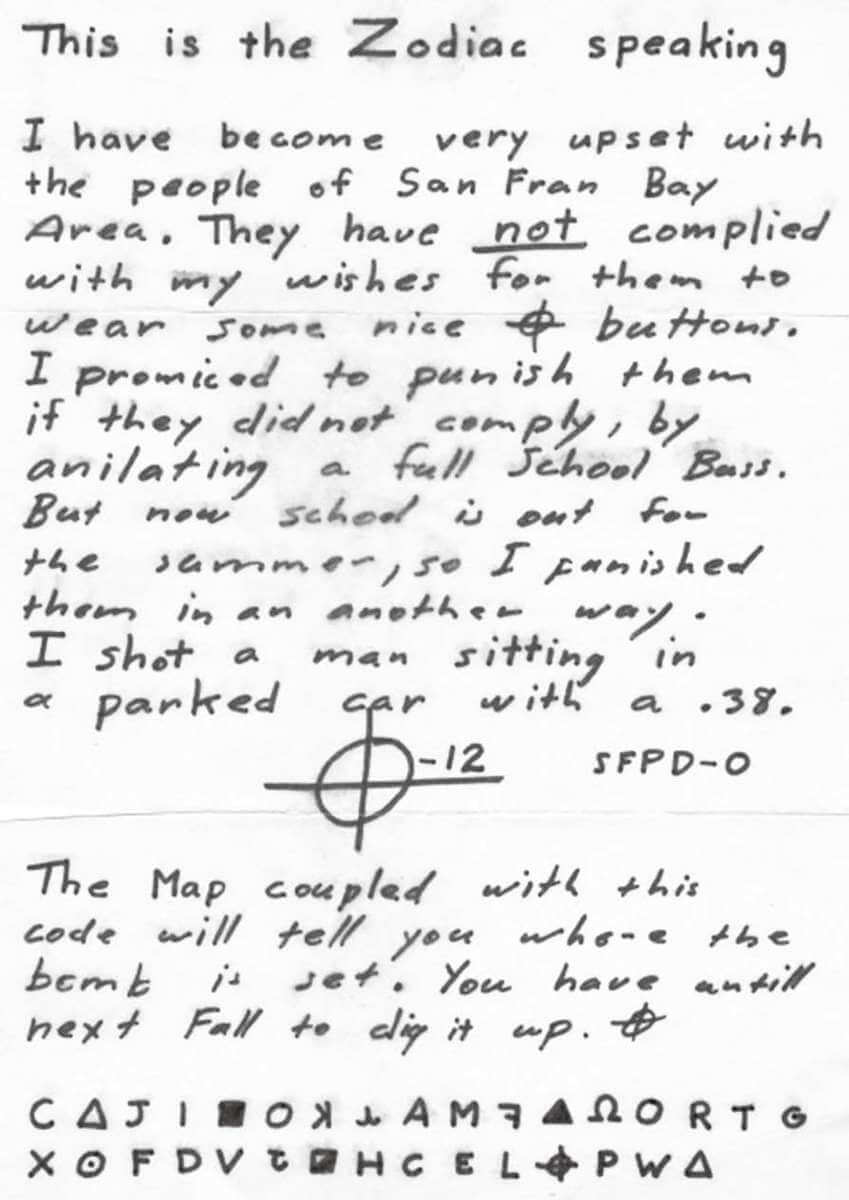 This is the Zodiac speaking
I have become very upset with
the people of San Fran Bay
Area. They have not complied
with my wishes for them to
wear some nice ⌖ buttons.
I promiced to punish them
if they did not comply, by
anilating a full School Buss.
But now school is out for
the summer, so I punished
them in an another way.
I shot a man sitting in
a parked car with a .38.
⌖-12 SFPD-0
The Map coupled with this
code will tell you whore the
bomb is set. You have untill
next Fall to dig it up. ⌖
C Δ J I ■ O ꓘ ⅄ A M ꟻ ▲ Ω O R T G
X ⊙ F D V Ɛ ◪ H C E L ⌖ P W Δ